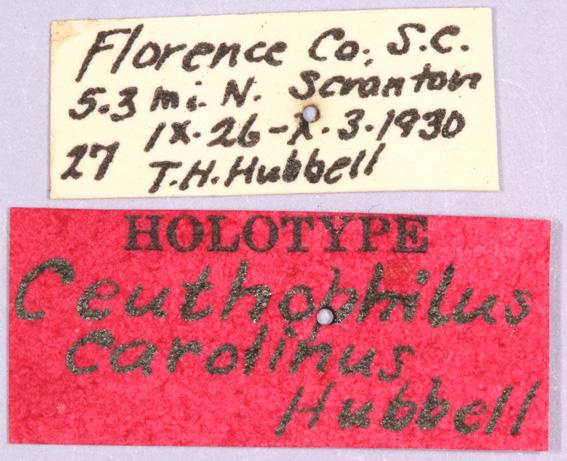 Florence Co; S.C.
5.3 mi. N. Scranton
IX-26-X.3.1930
27 T.H. Hubbell
HOLOTYPE
Ceuthophilus
carolinus
Hubbell